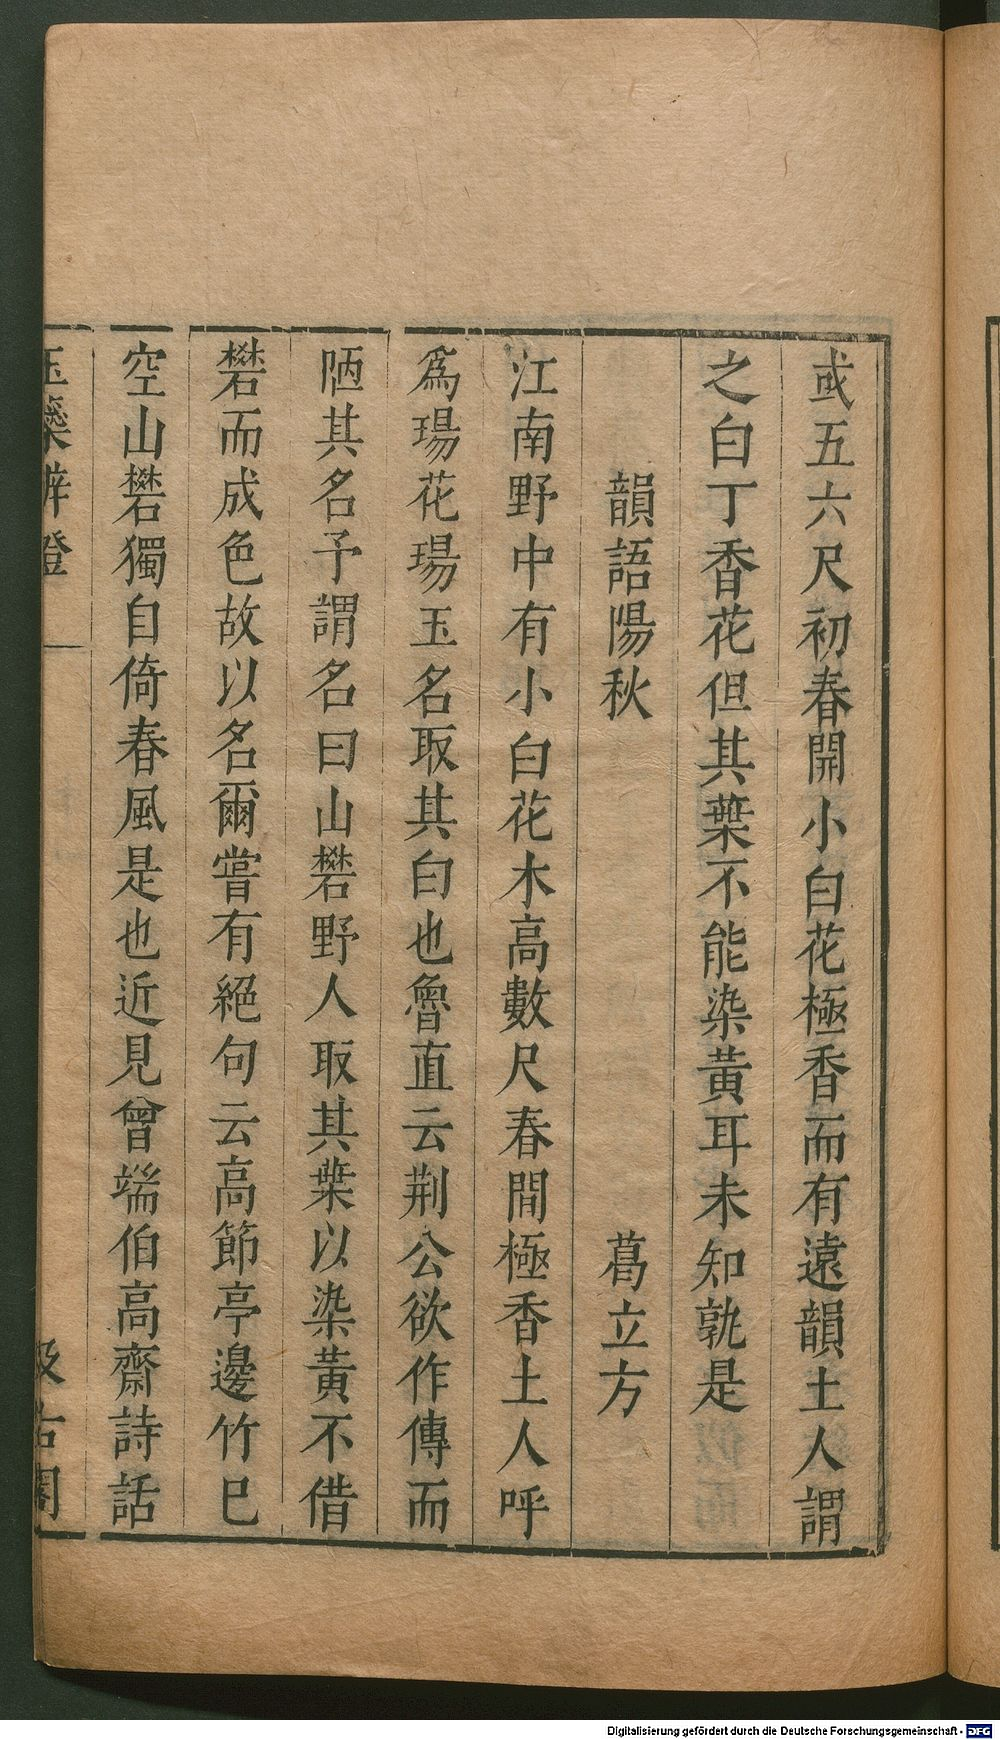 或五六尺初春開小白花極香而有遠韻土人謂
之白丁香花但其葉不能染黃耳未知孰是
韻語陽秋 葛立方
江南野中有小白花木高數尺春間極香土人呼
爲瑒花瑒玉名取其白也魯直云荆公欲作傳而
陋其名予謂名曰山礬野人取其葉以染黃不借
礬而成色故以名爾嘗有絕句云高節亭邊竹已
空山礬獨自倚春風是也近見曾端伯高齋詩話
玉蘂辨證 一 汲古閣
Digitalisierung gefördert durch die Deutsche Forschungsgemeinschaft - DFG